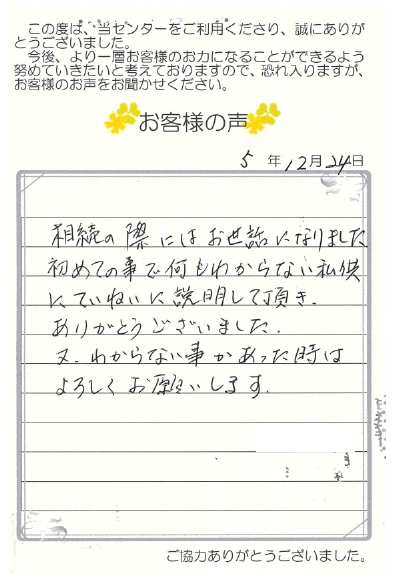 この度は、当センターをご利用くださり、誠にありが
とうございました。
今後、より一層お客様のお力になることができるよう
努めていきたいと考えておりますので、恐れ入りますが、
お客様のお声をお聞かせください。
お客様の声
5 年 12月 24日
相続の際にはお世話になりました
初めての事で何もわからない私供
にていねいに説明して頂き.
ありがとうございました.
又.わからない事があった時は
よろしくお願いします.
ご協力ありがとうございました。